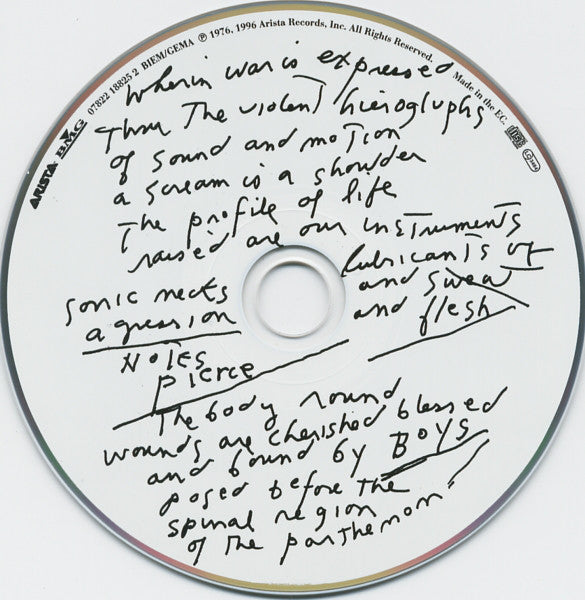 07822 18825 2 BIEM/GEMA ℗ 1976, 1996 Arista Records, Inc. All Rights Reserved.
Made in the EC.
ARISTA BMG
Wherin war is expressed
Thru The violent hieroglyphs
of sound and moTion
a scream is a shoulder
The profile of life
raised are our insTruments
sonic necks
agression
lubricanTs of
and sweaT
and flesh
NoTes
pierce
The body round
wounds are cherished blessed
and bound by Boys
posed before The
spinal region
of The parthenon"